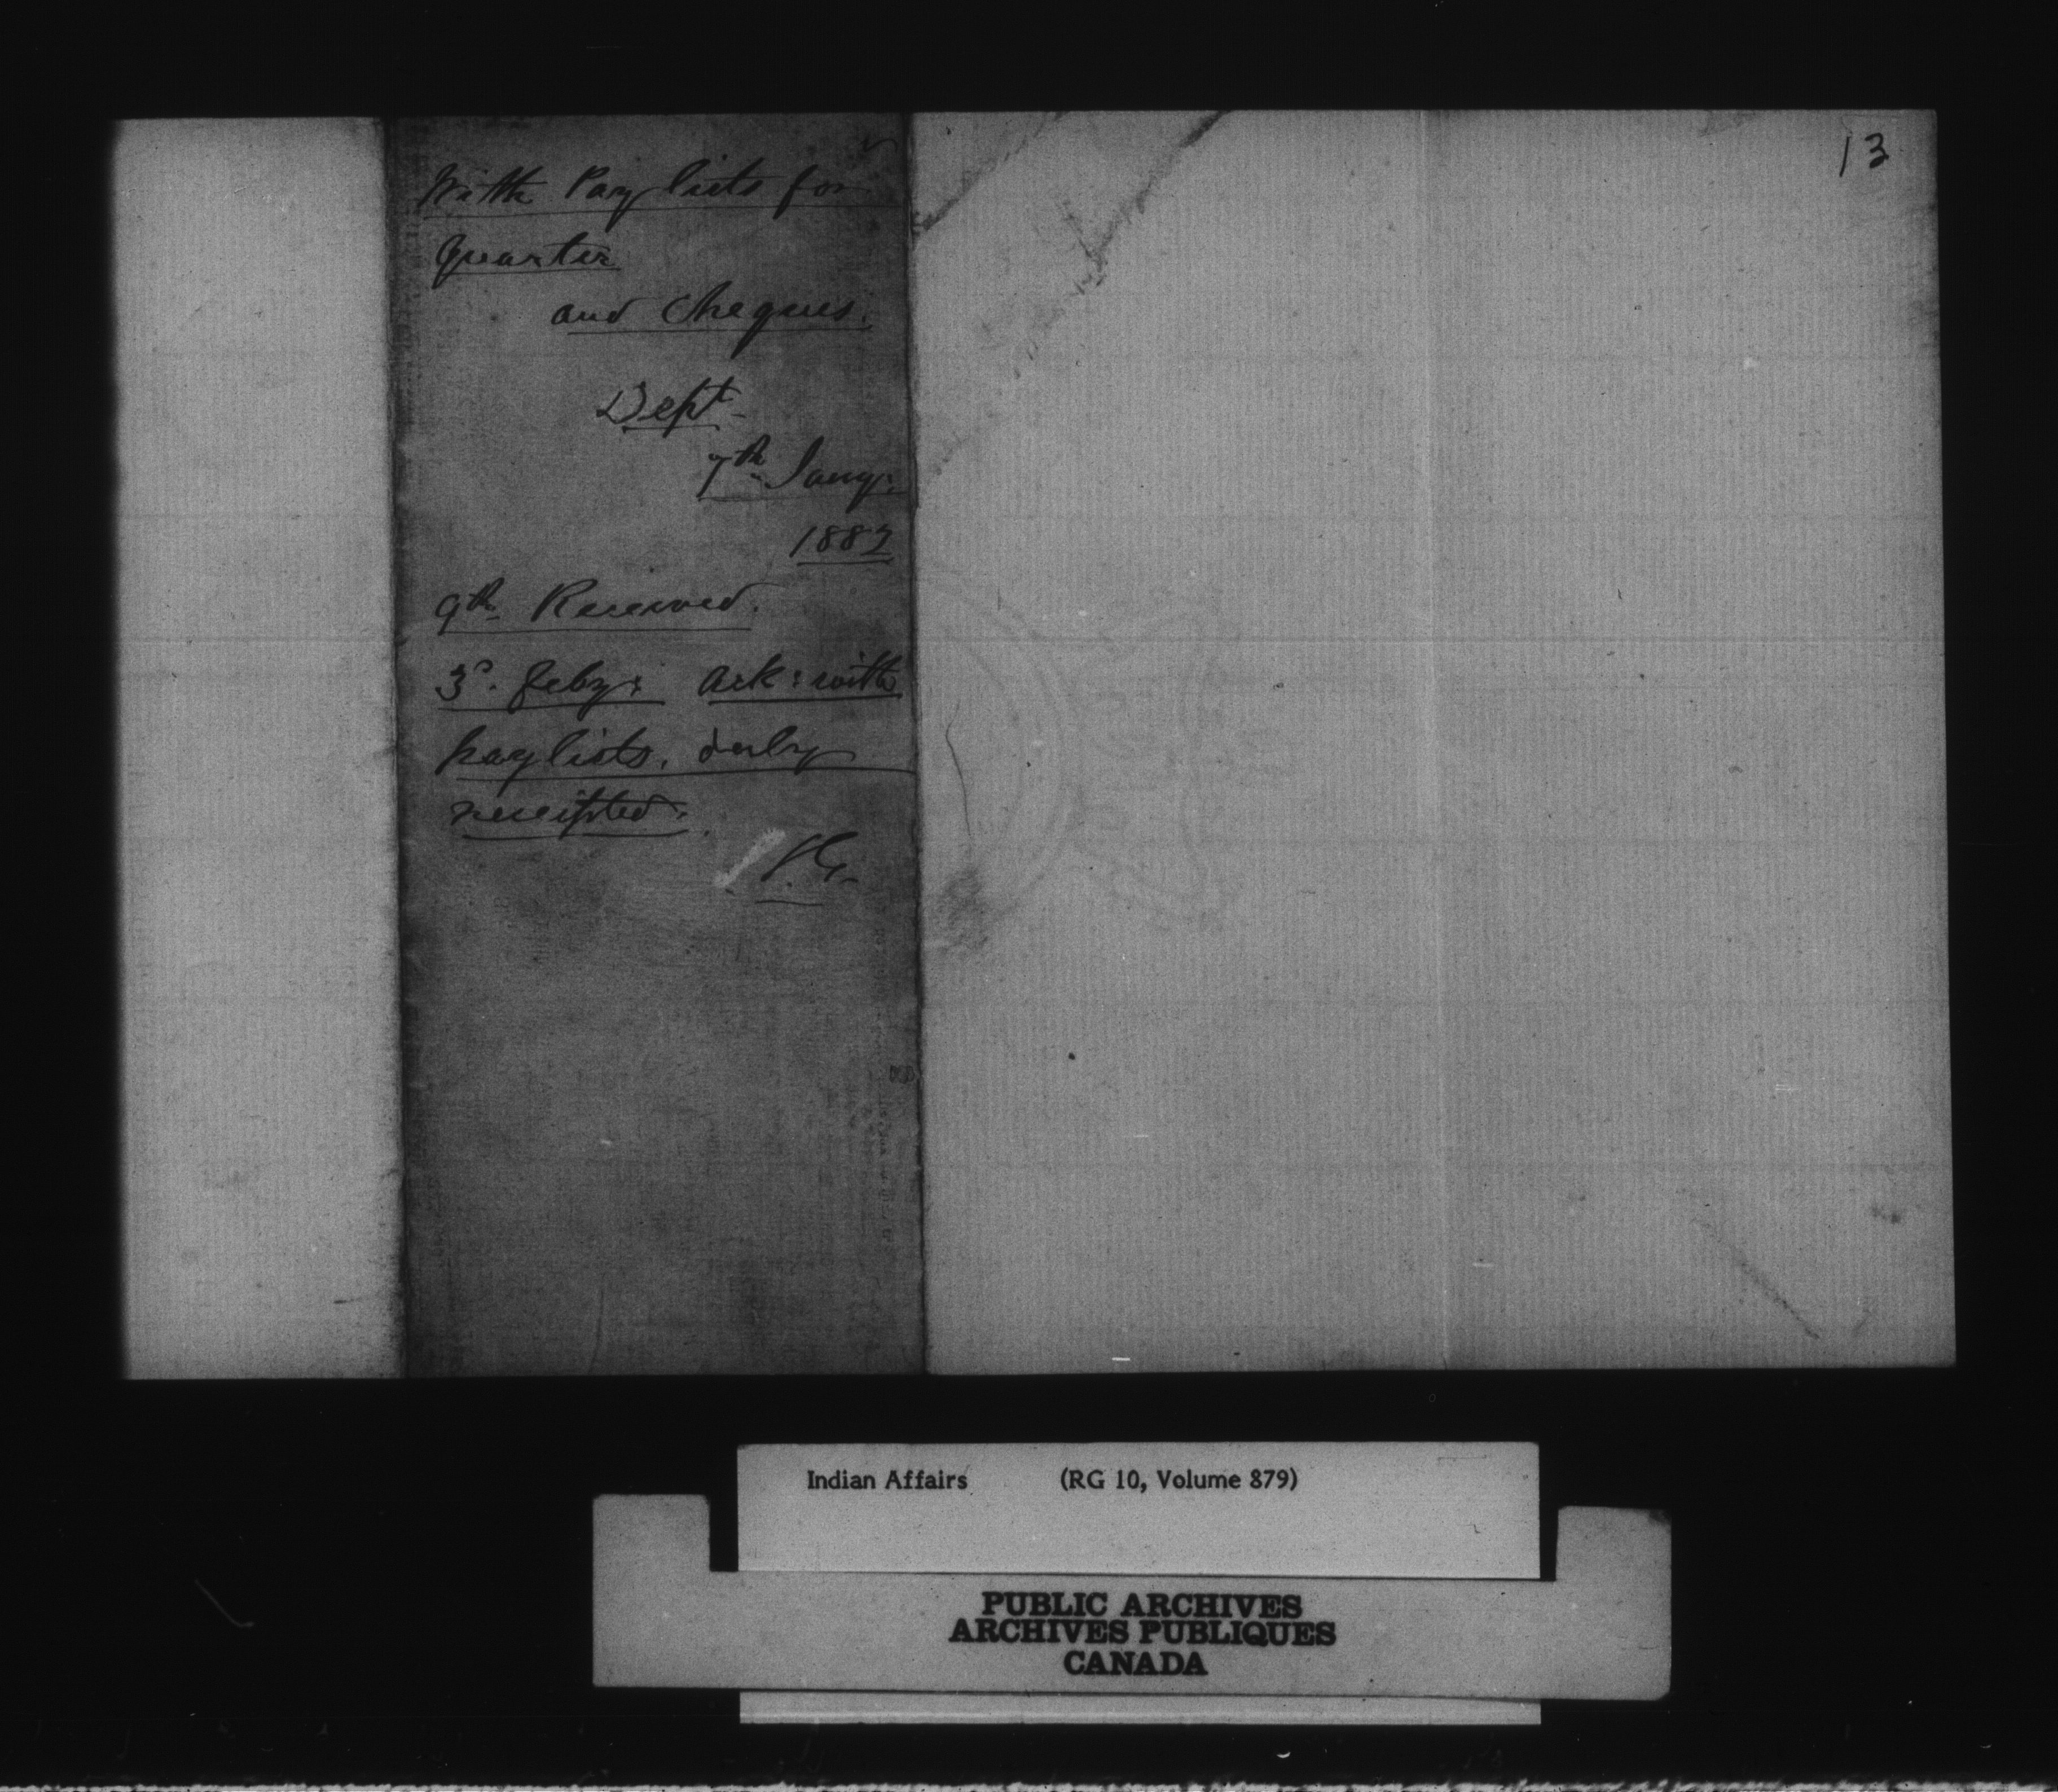 With Pay lists for
quarter
and Cheques.
Dept.
7th Jany:
1883
9th Received.
3d. Feby: Ack: with
pay lists, duly
receipted.
J.G.
13
Indian Affairs (RG 10, Volume 879)
PUBLIC ARCHIVES
ARCHIVES PUBLIQUES
CANADA